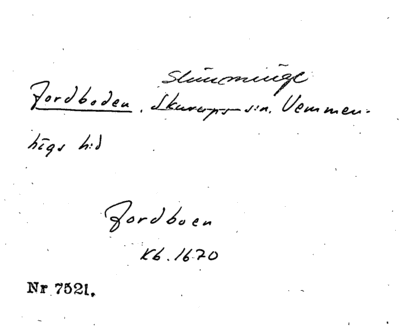 Jordboden, Skurups sn, Vemmen-
högs hd
Jordboen
Kb. 1670
Nr 7521.